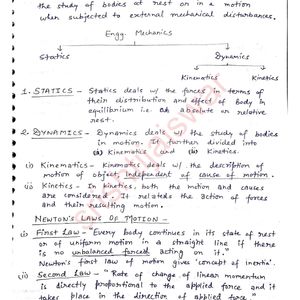 the study of bodies at rest or in a motion
when subjected to external mechanical disturbances.
Engg. Mechanics
Statics Dynamics
Kinematics Kinetics
1. STATICS - Statics deals w/ the forces in terms of
their distribution and effect of body in
equilibrium i.e. absolute or relative
rest.
2. DYNAMICS - Dynamics deals w/ the study of bodies
in motion. further divided into
(i) Kinematics and (ii) Kinetics.
(i) Kinematics - Kinematic deals w/ the description of
motion of object independent of cause of motion.
(ii) Kinetics - In kinetics, both the motion and causes
are considered. It relates the action of forces
and their resulting motion.
NEWTON'S LAWS OF MOTION -
(i) First Law - Every body continues in its state of rest
or of uniform motion in a straight line if there
is no unbalanced forced acting on it."
Newton's first law of motion gives 'concept of inertia'.
(ii) Second Law - "Rate of change of linear momentum
is directly proportional to the applied force and it
takes place in the direction of applied force."